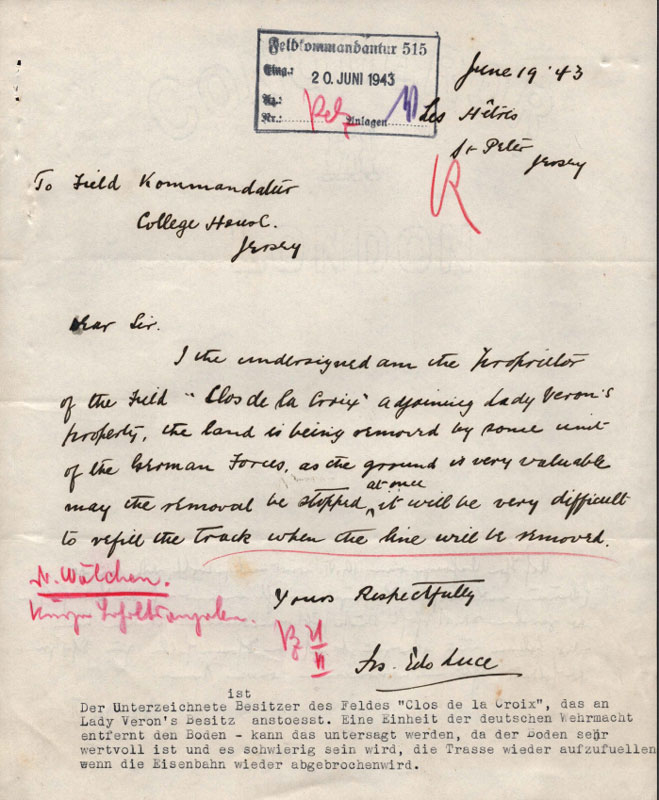 Feldkommandantur 515
Eing.: 20. JUNI 1943
Az.:
Nr.: Anlagen
June 19 '43
Les Hêtres
St Peter
Jersey
To Field Kommandatur
College House.
Jersey
Dear Sir.
I the undersigned am the Proprietor
of the Field "Clos de la Croix" adjoining Lady Veron's
property, the land is being removed by some unit
of the German Forces, as the ground is very valuable
at once
may the removal be stopped, it will be very difficult
to refill the track when the line will be removed.
Yours Respectfully
Luce
ist
Der Unterzeichnete Besitzer des Feldes "Clos de la Croix", das an
Lady Veron's Besitz anstoesst. Eine Einheit der deutschen Wehrmacht
entfernt den Boden - kann das untersagt werden, da der Boden sehr
wertvoll ist und es schwierig sein wird, die Trasse wieder aufzufuellen
wenn die Eisenbahn wieder abgebrochenwird.